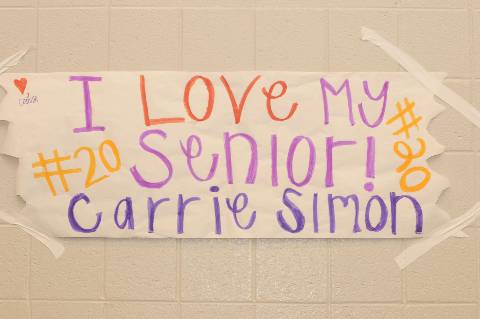 I LOVE MY
#20 SENIOR! #20
Carrie Simon